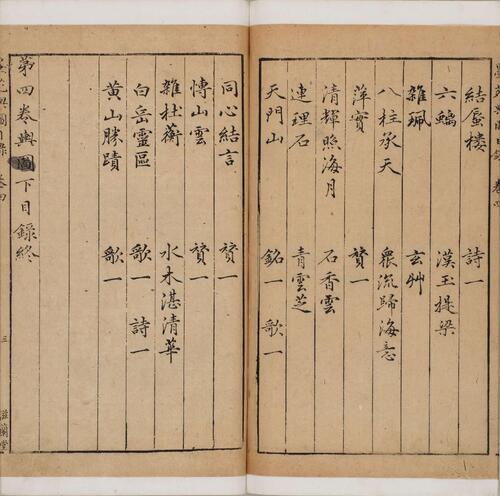 結蜃樓 詩一
六螭 漢玉提梁
雜珮 玄艸
八柱承天 衆流歸海意
萍實 贊一
清輝照海月 石香雲
連理石 青雲芝
天門山 銘一 歌一
同心結言 贊一
慱山雲 贊一
雜杜蘅 水木湛清華
白岳靈區 歌一 詩一
黄山勝蹟 歌一
第四卷輿圖下目錄終
三
滋蘭堂